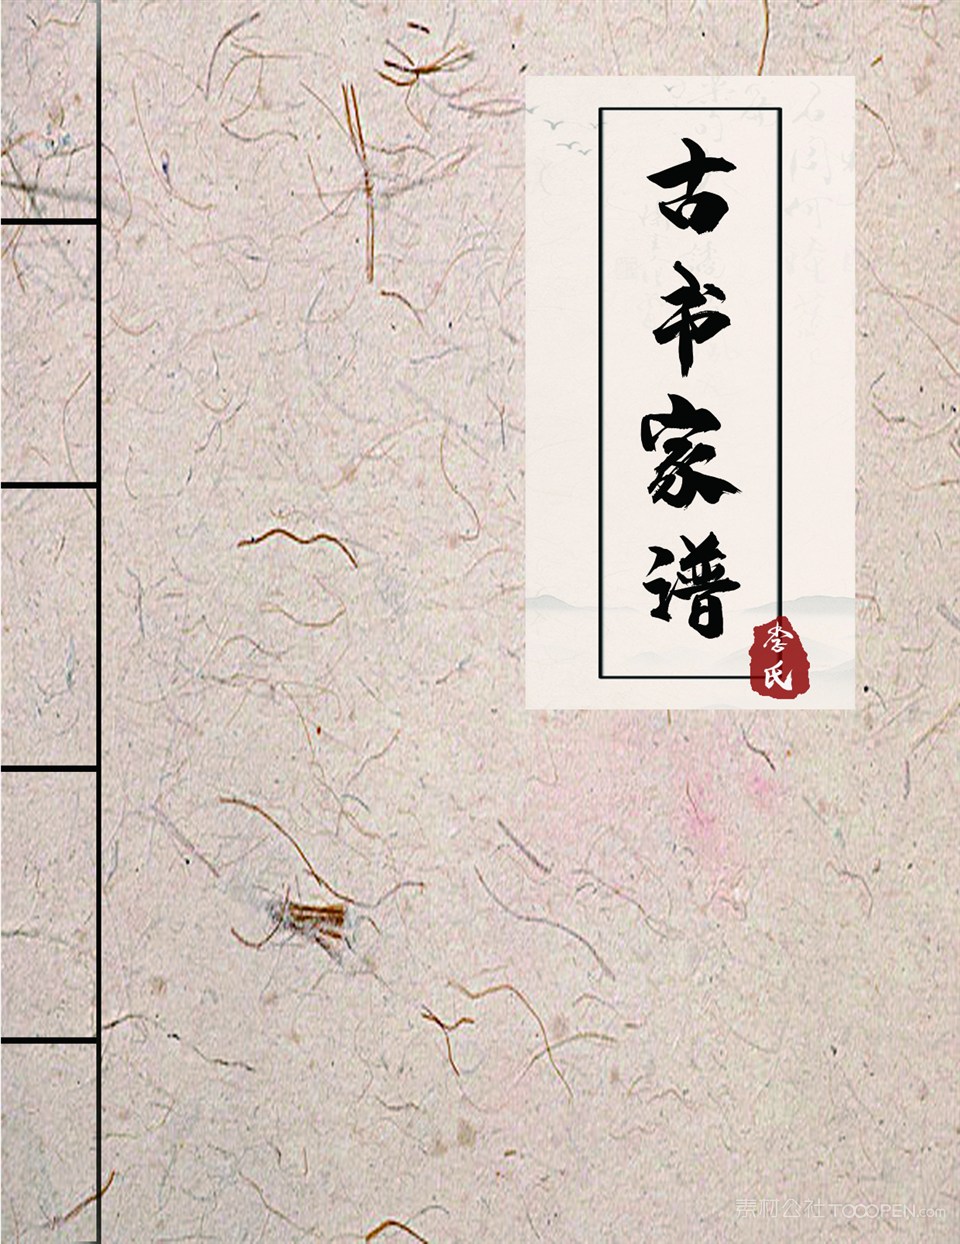 古书家谱
李氏
素材公社 TOOOPEN.com